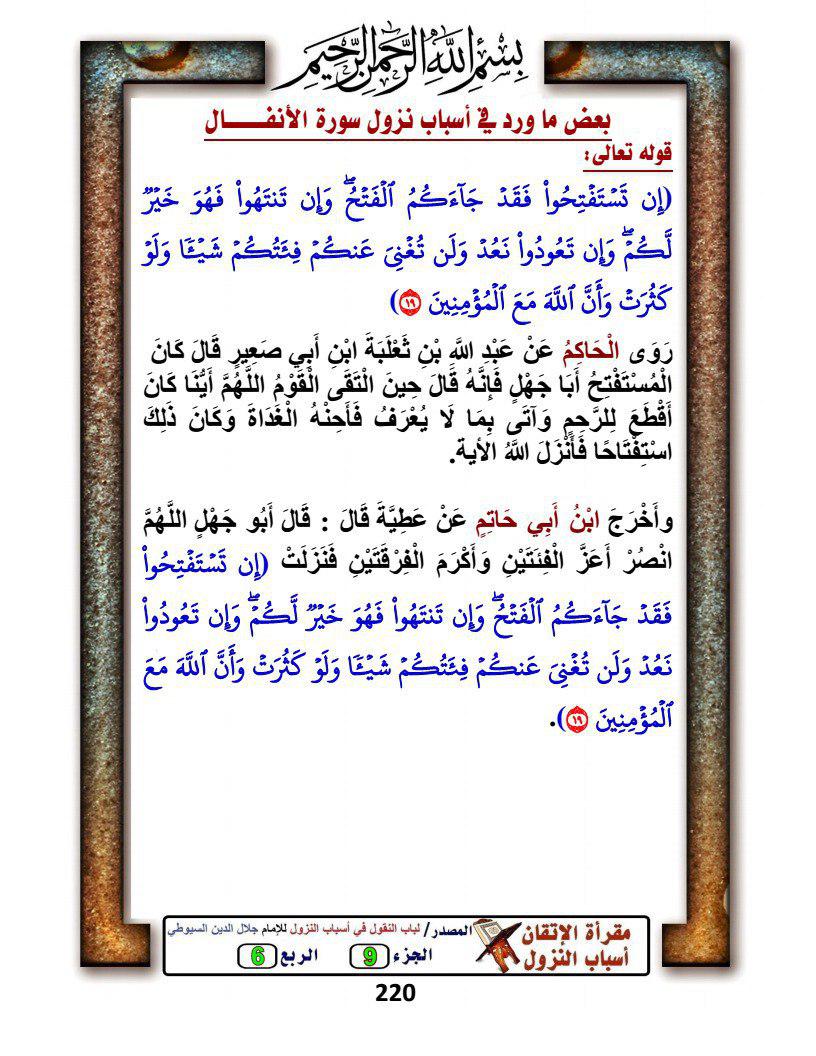 بِسْمِ اللَّهِ الرَّحْمَنِ الرَّحِيمِ
بعض ما ورد في أسباب نزول سورة الأنفـــــال
قوله تعالى:
(إِن تَسۡتَفۡتِحُواْ فَقَدۡ جَآءَكُمُ ٱلۡفَتۡحُۖ وَإِن تَنتَهُواْ فَهُوَ خَيۡرٞ
لَّكُمۡۖ وَإِن تَعُودُواْ نَعُدۡ وَلَن تُغۡنِيَ عَنكُمۡ فِئَتُكُمۡ شَيۡـٔٗا وَلَوۡ
كَثُرَتۡ وَأَنَّ ٱللَّهَ مَعَ ٱلۡمُؤۡمِنِينَ ١٩)
رَوَى الْحَاكِمُ عَنْ عَبْدِ اللَّهِ بْنِ ثَعْلَبَةَ ابْنِ أَبِي صَعِيرٍ قَالَ كَانَ
الْمُسْتَفْتِحُ أَبَا جَهْلٍ فَإِنَّهُ قَالَ حِينَ الْتَقَى الْقَوْمُ اللَّهُمَّ أَيُّنَا كَانَ
أَقْطَعَ لِلرَّحِمِ وَآتَى بِمَا لَا يُعْرَفُ فَأَحِنْهُ الْغَدَاةَ وَكَانَ ذَلِكَ
اسْتِفْتَاحًا فَأَنْزَلَ اللَّهُ الأية.
وأَخْرَجَ ابْنُ أَبِي حَاتِمٍ عَنْ عَطِيَّةَ قَالَ : قَالَ أَبُو جَهْلٍ اللَّهُمَّ
انْصُرْ أَعَزَّ الْفِئَتَيْنِ وَأَكْرَمَ الْفِرْقَتَيْنِ فَنَزَلَتْ (إِن تَسۡتَفۡتِحُواْ
فَقَدۡ جَآءَكُمُ ٱلۡفَتۡحُۖ وَإِن تَنتَهُواْ فَهُوَ خَيۡرٞ لَّكُمۡۖ وَإِن تَعُودُواْ
نَعُدۡ وَلَن تُغۡنِيَ عَنكُمۡ فِئَتُكُمۡ شَيۡـٔٗا وَلَوۡ كَثُرَتۡ وَأَنَّ ٱللَّهَ مَعَ
ٱلۡمُؤۡمِنِينَ ١٩).
مقرأة الإتقان
أسباب النزول
المصدر/ لباب النقول في أسباب النزول للإمام جلال الدين السيوطي
الجزء 9 الربع 6
220